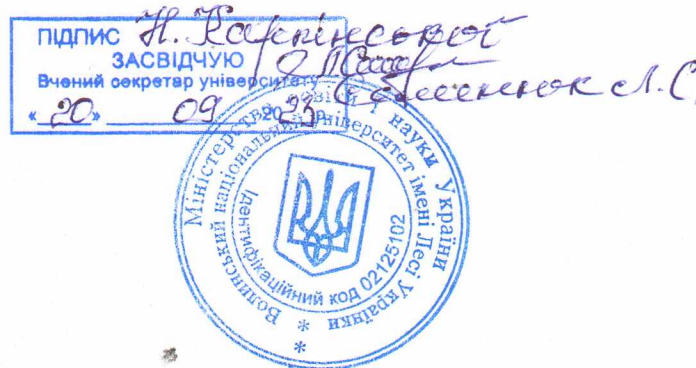 ПІДПИС Н. Карпінської
ЗАСВІДЧУЮ
Вчений секретар університету
«20» 09 2023р.
Міністерство освіти і науки України
Волинський національний університет імені Лесі Українки
Ідентифікаційний код 02125102